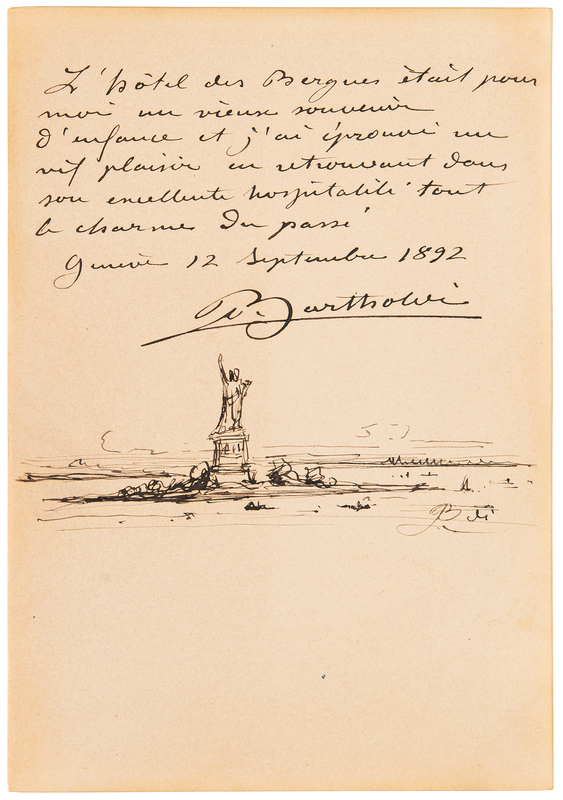 L'hôtel des Bergues était pour
moi un vieux souvenir
d'enfance et j'ai éprouvé un
vif plaisir en retrouvant dans
son excellente hospitalité tout
le charme du passé
Genève 12 Septembre 1892
Bartholdi
B di